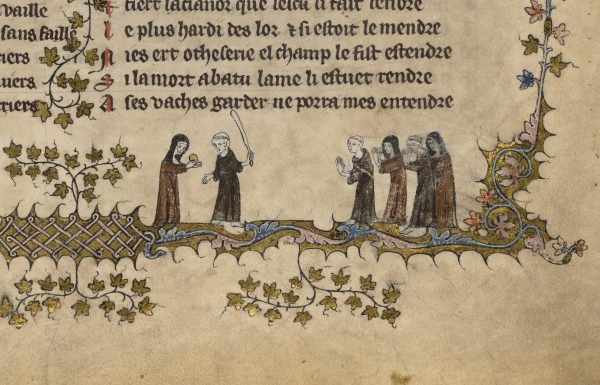 vaille
tiert lacianor que celui li fait tendre
sans faille
le plus hardi des lor ⁊ si estoit le mendre
riers
n ies ert otheserie el champ le fist estendre
uiers
S i la mort abatu lame li estuet rendre
triers
A ses vaches garder ne porra mes entendre